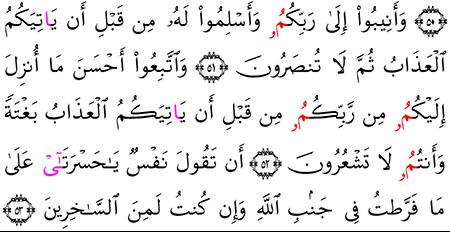 ۝٥٠ وَأَنِيبُوٓا۟ إِلَىٰ رَبِّكُمُۥ وَأَسْلِمُوا۟ لَهُۥ مِن قَبْلِ أَن يَاتِيَكُمُ
ٱلْعَذَابُ ثُمَّ لَا تُنصَرُونَ ۝٥١ وَٱتَّبِعُوٓا۟ أَحْسَنَ مَآ أُنزِلَ
إِلَيْكُمُۥ مِن رَّبِّكُمُۥ مِن قَبْلِ أَن يَاتِيَكُمُ ٱلْعَذَابُ بَغْتَةً
وَأَنتُمُۥ لَا تَشْعُرُونَ ۝٥٢ أَن تَقُولَ نَفْسٌ يَٰحَسْرَتَٰٓىْ عَلَىٰ
مَا فَرَّطتُ فِى جَنۢبِ ٱللَّهِ وَإِن كُنتُ لَمِنَ ٱلسَّٰخِرِينَ ۝٥٣